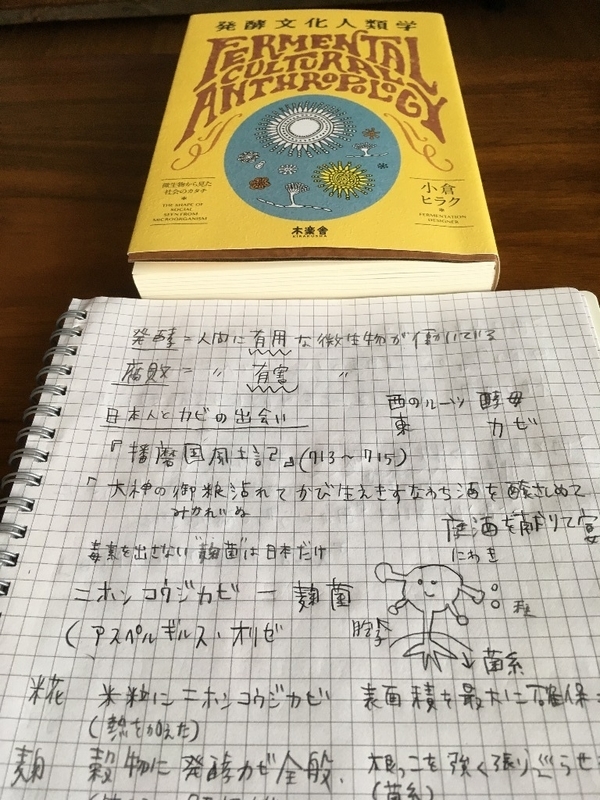 発酵文化人類学
FERMENTAL
CULTURAL
ANTHROPOLOGY
微生物から見た
社会のカタチ
THE SHAPE OF
SOCIAL
SEEN FROM
MICROORGANISM
小倉
ヒラク
FERMENTATION
DESIGNER
木楽舎
KIRAKUSHA
発酵 = 人間に有用な微生物が働いている
腐敗 = 〃 有害 〃
日本人とカビの出会い
西のルーツ 酵母
東 カビ
『播磨国風土記』(713〜715)
「大神の御粮沾れてかび生えきすなわち酒を醸さしめて
みかれいぬ
庭酒を献りて宴
にわき
毒素を出さない"麹菌"は日本だけ
ニホンコウジカビ ー 麹菌
(アスペルギルス・オリゼ
胞子
→菌糸
糀 米粒にニホンコウジカビ 表面積を最大に確保
(熱を加えた)
麹 穀物に発酵カビ全般、根っこを強く張りめぐらせ
(菌糸)